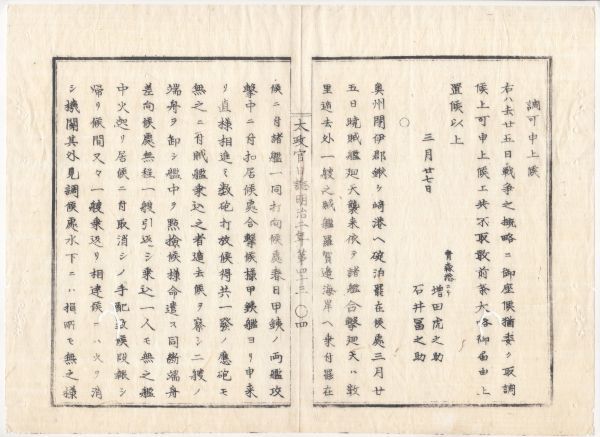 調可申上候
右ハ去廿五日戦争之概略ニ御座候猶委ク取調
候上可申上候ヱ共不取敢前条大略御届申上
置候以上
三月廿七日
青森港ニテ
増田虎之助
石井冨之助
〇
奥州閉伊郡鍬ケ崎港ヘ碇泊罷在候処三月廿
五日暁賊艦廻天襲来依テ諸艦合撃廻天ハ数
里逃去外一艘之賊艦羅賀辺海岸ヘ乗付罷在
太政官日誌明治二年第四十三 〇四
候ニ付諸艦一同打向候処春日甲鉄ノ両艦攻
撃中ニ付扣居候処合撃候様甲鉄艦ヨリ申来
リ直様相進ミ数砲打放候得共一発ノ応砲モ
無之ニ付賊艦乗込之者逃去候ヲ察シ二艘ノ
端舟ヲ卸シ艦中ヲ点撿候様命遣ス同断端舟
差向候処無程一艘引返シ乗込一人モ無之艦
中火起リ居候ニ付取消シノ手配致候段報シ
帰リ候間又々一艘乗返リ相達候ニハ火ヲ消
シ機関其外見調候処水下ニハ損所モ無之様